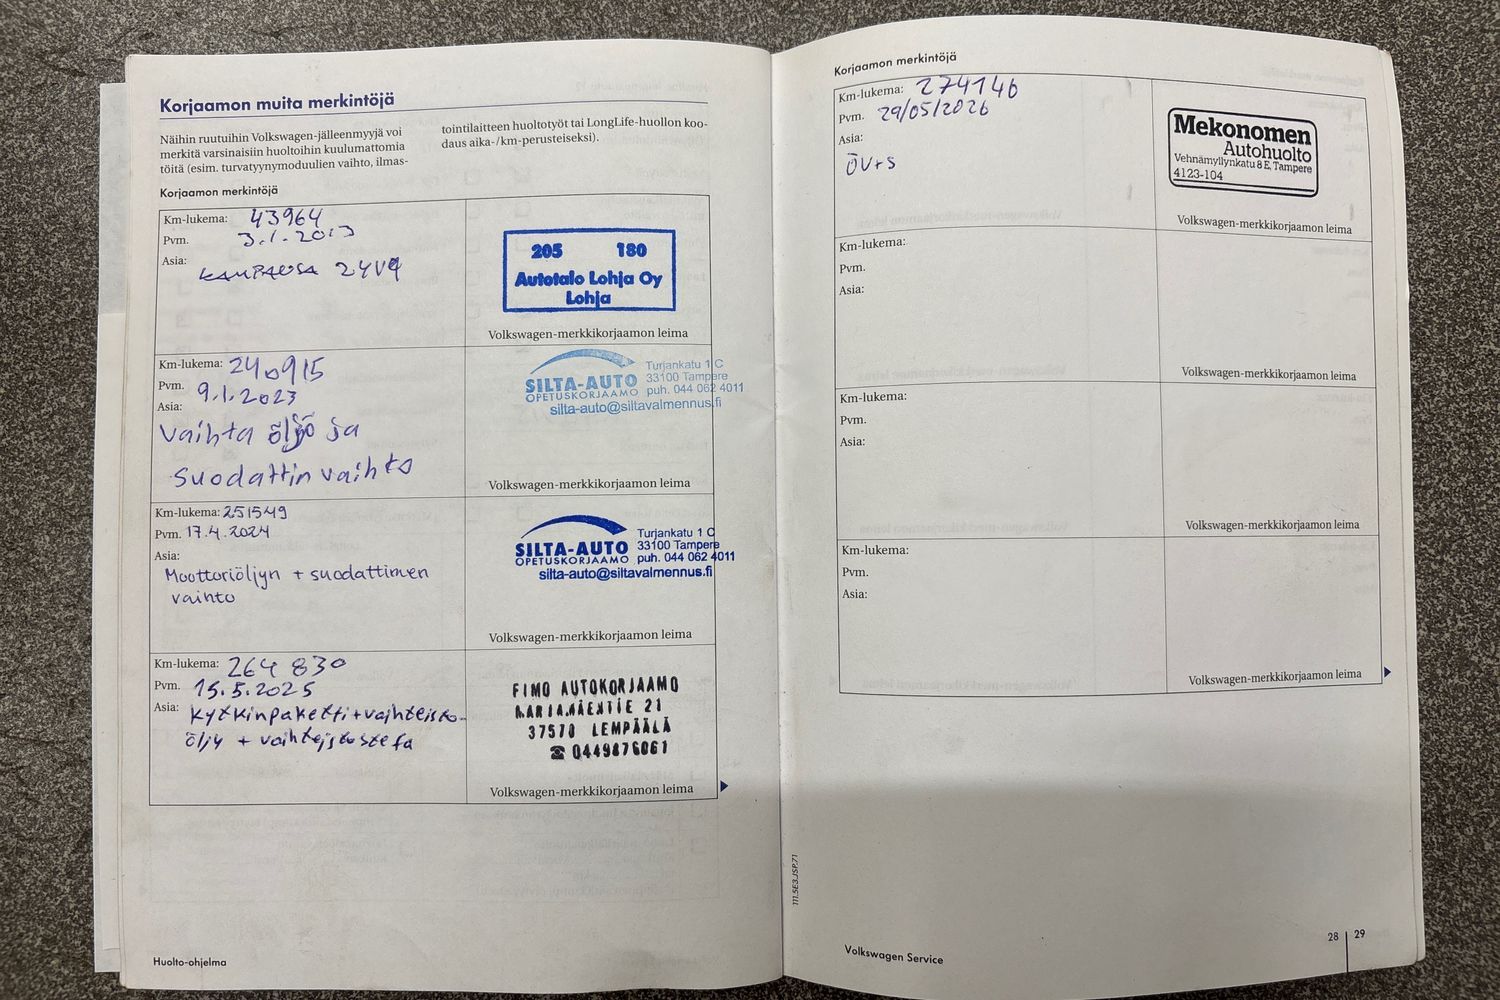 Korjaamon muita merkintöjä
Näihin ruutuihin Volkswagen-jälleenmyyjä voi
merkitä varsinaisiin huoltoihin kuulumattomia
töitä (esim. turvatyynymoduulien vaihto, ilmas-
tointilaitteen huoltotyöt tai LongLife-huollon koo-
daus aika-/km-perusteiseksi).
Korjaamon merkintöjä
Km-lukema: 43964
Pvm. 3.1.2013
Asia:
KAMPANJA 24V9
205 180
Autotalo Lohja Oy
Lohja
Volkswagen-merkkikorjaamon leima
Km-lukema: 240915
Pvm. 9.1.2023
Asia:
Vaihta öljö ja
suodattin vaihto
SILTA-AUTO
OPETUSKORJAAMO
Turjankatu 1 C
33100 Tampere
puh. 044 062 4011
silta-auto@siltavalmennus.fi
Volkswagen-merkkikorjaamon leima
Km-lukema: 251549
Pvm. 17.4.2024
Asia:
Moottoriöljyn + suodattimen
vaihto
SILTA-AUTO
OPETUSKORJAAMO
Turjankatu 1 C
33100 Tampere
puh. 044 062 4011
silta-auto@siltavalmennus.fi
Volkswagen-merkkikorjaamon leima
Km-lukema: 264 830
Pvm. 15.5.2025
Asia: kytkinpaketti+vaihteisto-
öljy + vaihteistostefa
FIMO AUTOKORJAAMO
MARJAMÄENTIE 21
37570 LEMPÄÄLÄ
☎ 0449876061
Volkswagen-merkkikorjaamon leima
Huolto-ohjelma
Korjaamon merkintöjä
Km-lukema: 274146
Pvm. 29/05/2026
Asia:
ÖV+S
Mekonomen
Autohuolto
Vehnämyllynkatu 8 E, Tampere
4123-104
Volkswagen-merkkikorjaamon leima
Km-lukema:
Pvm.
Asia:
Volkswagen-merkkikorjaamon leima
Km-lukema:
Pvm.
Asia:
Volkswagen-merkkikorjaamon leima
Km-lukema:
Pvm.
Asia:
Volkswagen-merkkikorjaamon leima
111.5E3.JSP.71
Volkswagen Service
28 29